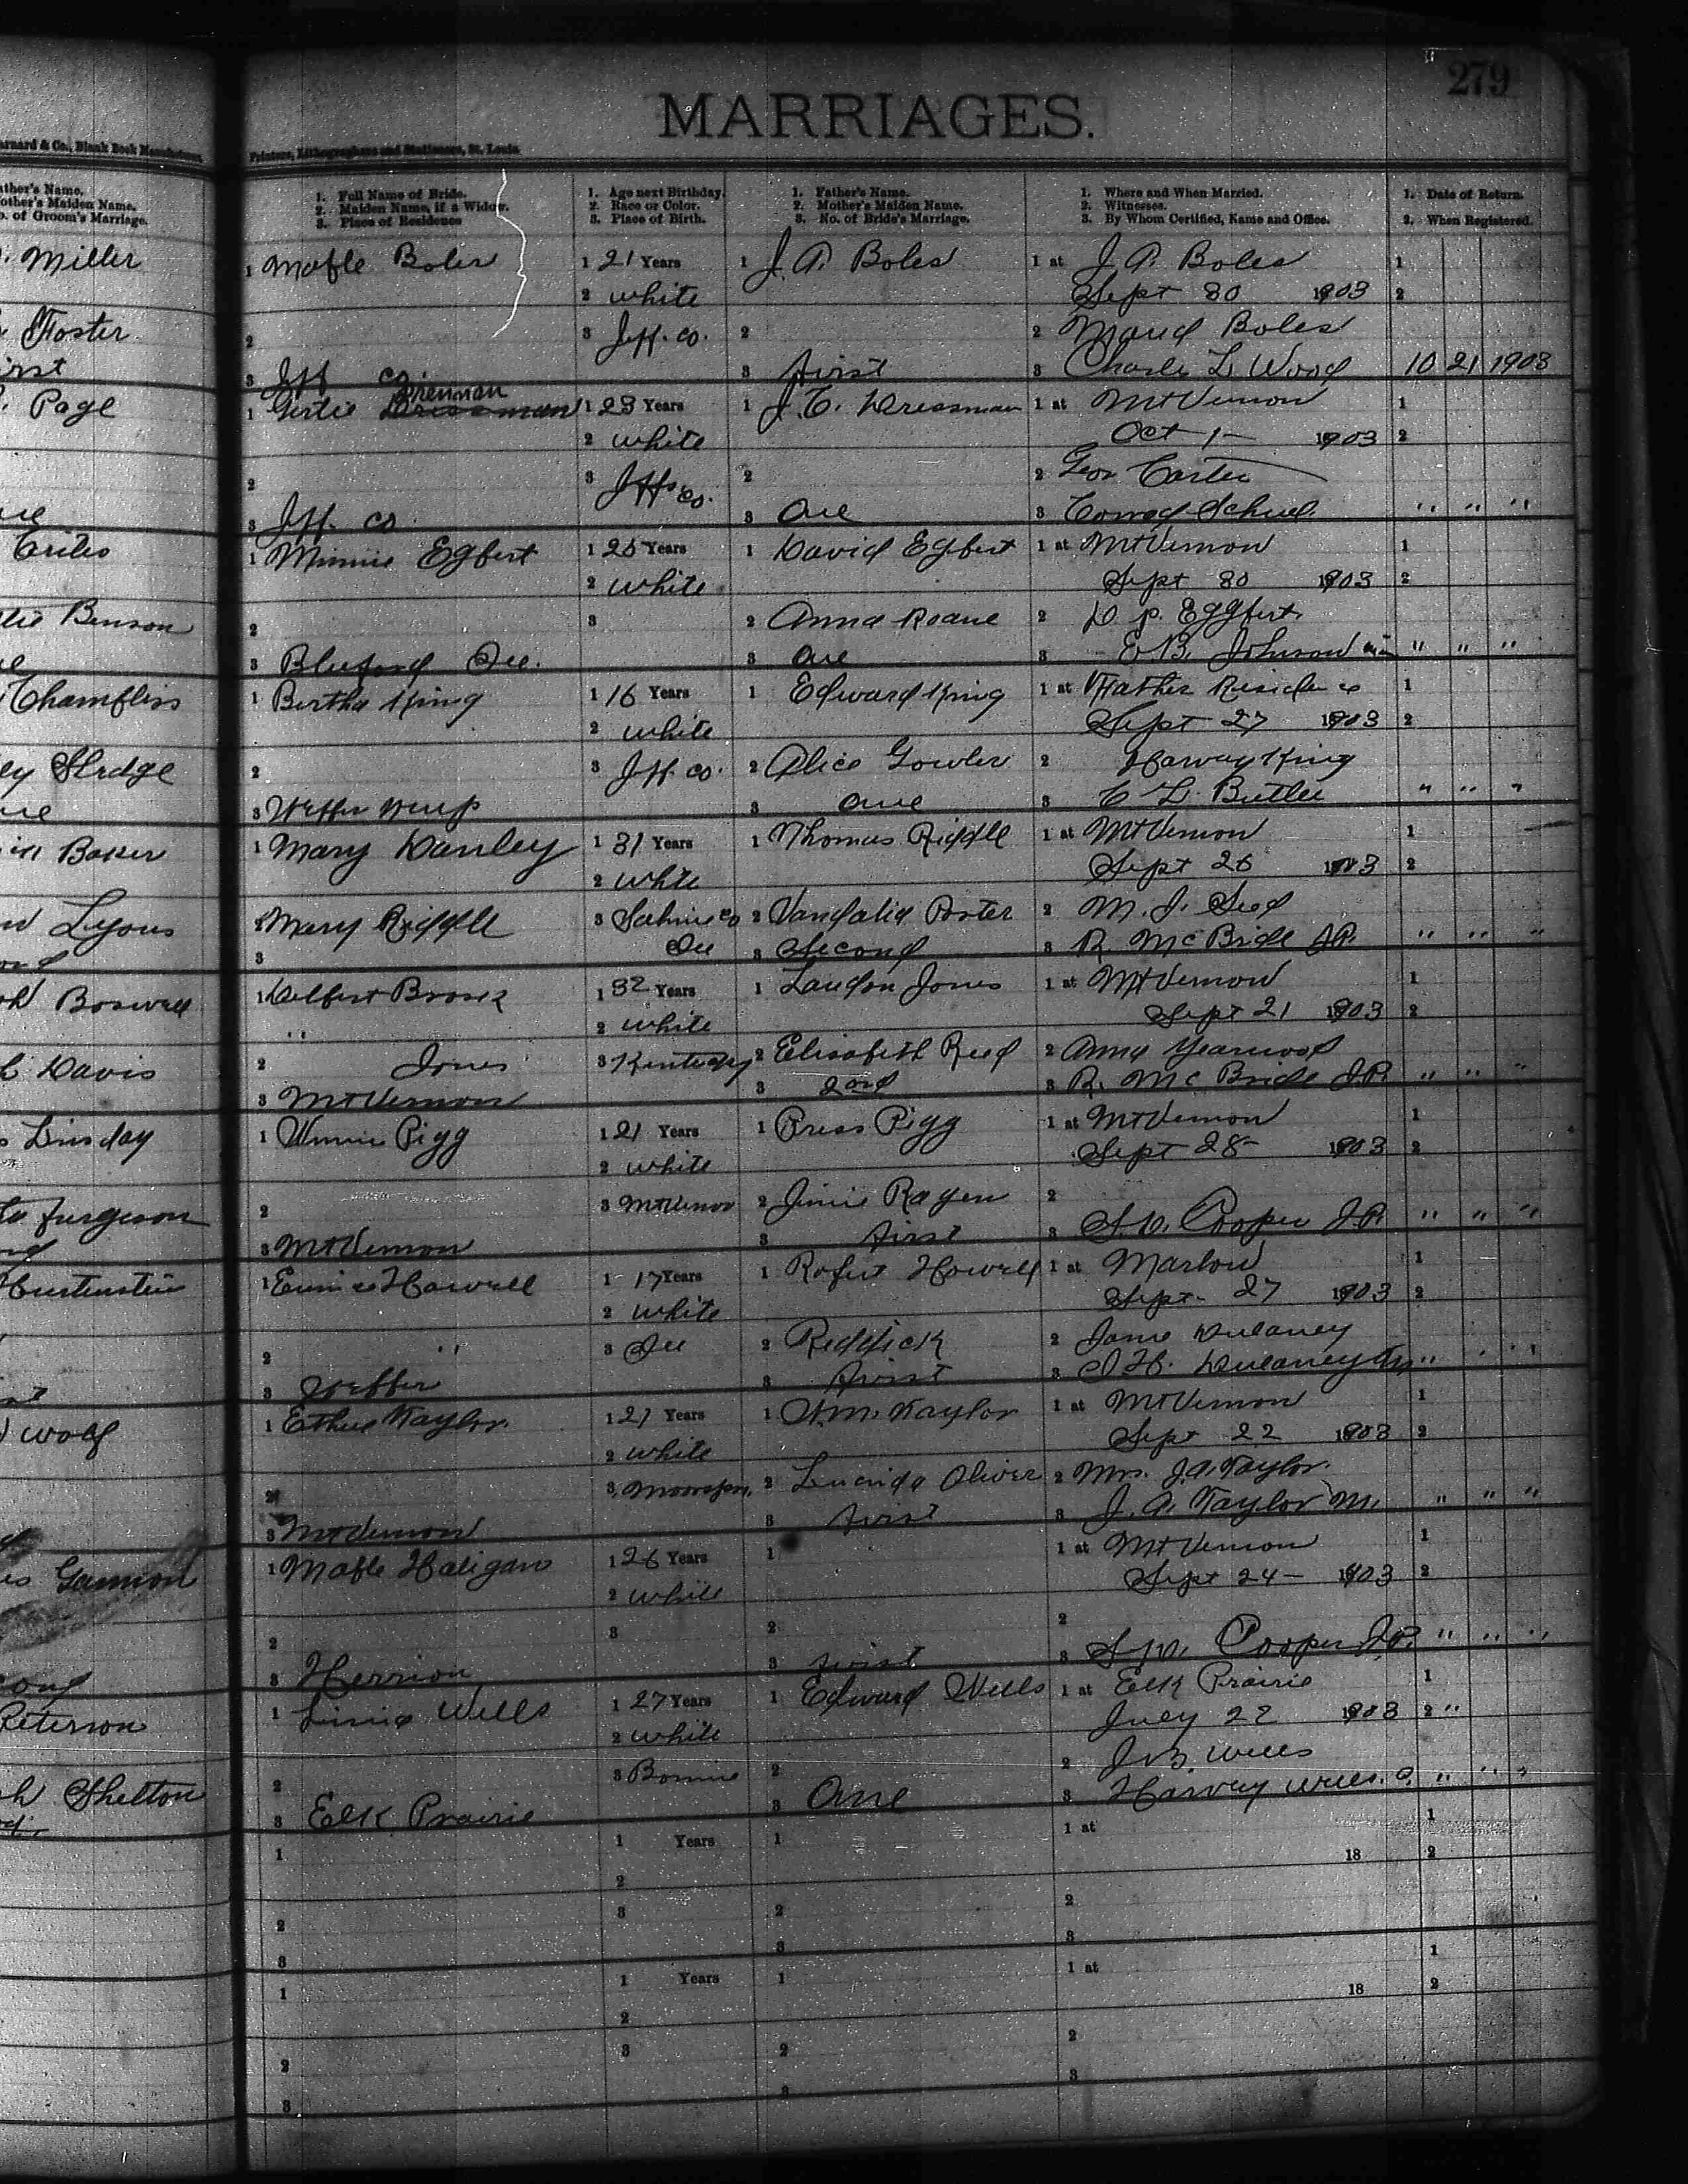 279
MARRIAGES.
Barnard & Co., Blank Book Manufacturers
Printers, Lithographers and Stationers, St. Louis.
Father's Name.
Mother's Maiden Name.
No. of Groom's Marriage.
1. Full Name of Bride.
2. Maiden Name, if a Widow.
3. Place of Residence
1. Age next Birthday.
2. Race or Color.
3. Place of Birth.
1. Father's Name.
2. Mother's Maiden Name.
3. No. of Bride's Marriage.
1. Where and When Married.
2. Witnesses.
3. By Whom Certified, Name and Office.
1. Date of Return.
2. When Registered.
Miller
1 Mable Boles 1 21 Years 1 J. A. Boles 1 at J. A. Boles 1
2 White Sept 30 1903 2
Foster
2 3 Jeff. co. 2 2 Maud Boles
3 Jeff co 3 first 3 Charles L Wood 10 21 1903
Page
Brennan
1 Gertie Dressman 1 23 Years 1 J. C. Dressman 1 at Mt Vernon 1
2 White Oct 1 - 1903 2
2 3 Jeff. co. 2 2 Geo Carter
3 Jeff. co 3 One 3 " " "
Crites
1 Minnie Egbert 1 25 Years 1 David Egbert 1 at Mt Vernon 1
2 White Sept 30 1903 2
Benson
2 3 2 Anna Roane 2 D. P. Eggbert
3 Bluford Ill. 3 One 3 E B. Johnson " " "
Chambliss
1 Bertha King 1 16 Years 1 Edward King 1 at Father Residence 1
2 White Sept 27 1903 2
Sledge
2 3 Jeff. co. 2 Alice Gowler 2 Harvey King
3 Webber 3 One 3 C L. Butler " " "
Baker
1 Mary Danley 1 31 Years 1 Thomas Riddle 1 at Mt Vernon 1
2 White Sept 26 1903 2
Lyons
2 Mary Riddle 3 Saline co 2 Vandalia Porter 2 M. J. Seed
3 Ill 3 Second 3 R. McBride J.P. " " "
Boswell
1 1 32 Years 1 Landon Jones 1 at Mt Vernon 1
" 2 White Sept 21 1903 2
Davis
2 Jones 3 Kentucky 2 Elisabeth Reed 2 Anna Yearwood
3 Mt Vernon 3 2nd 3 R. McBride J.P. " " "
Linsday
1 Pigg 1 21 Years 1 Press Pigg 1 at Mt Vernon 1
2 White Sept 28 - 1903 2
Furgeson
2 3 Mt Vernon 2 Jinie Ragen 2
3 Mt Vernon 3 first 3 Cooper J.P. " " "
Hurtenstein
1 Eunice Howell 1 17 Years 1 Robert Howell 1 at Marlow 1
2 White Sept- 27 1903 2
2 " 3 Ill 2 Reddick 2 Jane Dulaney
3 Webber 3 first 3 Dulaney " " "
Wolf
1 Ethel Taylor 1 27 Years 1 Taylor 1 at Mt Vernon 1
2 White Sept 22 1903 2
2 3 2 Lucinda Oliver 2 Mrs. J. A. Taylor
3 Mt Vernon 3 first 3 J. A. Taylor M. " " "
Gannon
1 Mable Haligan 1 26 Years 1 1 at Mt Vernon 1
2 White Sept 24 - 1903 2
2 3 2 2
3 Herrion 3 first 3 Cooper J.P. " " "
Peterson
1 Wells 1 27 Years 1 Edward Wells 1 at Elk Prairie 1
2 White July 22 1903 2 "
Shelton
2 3 Bonnie 2 2 J. B. Wells
3 Elk Prairie 3 One 3 Harvey Wells " " "
1 1 Years 1 1 at 1
2 18 2
2 3 2 2
3 3 3
1 1 Years 1 1 at 1
2 18 2
2 3 2 2
3 3 3